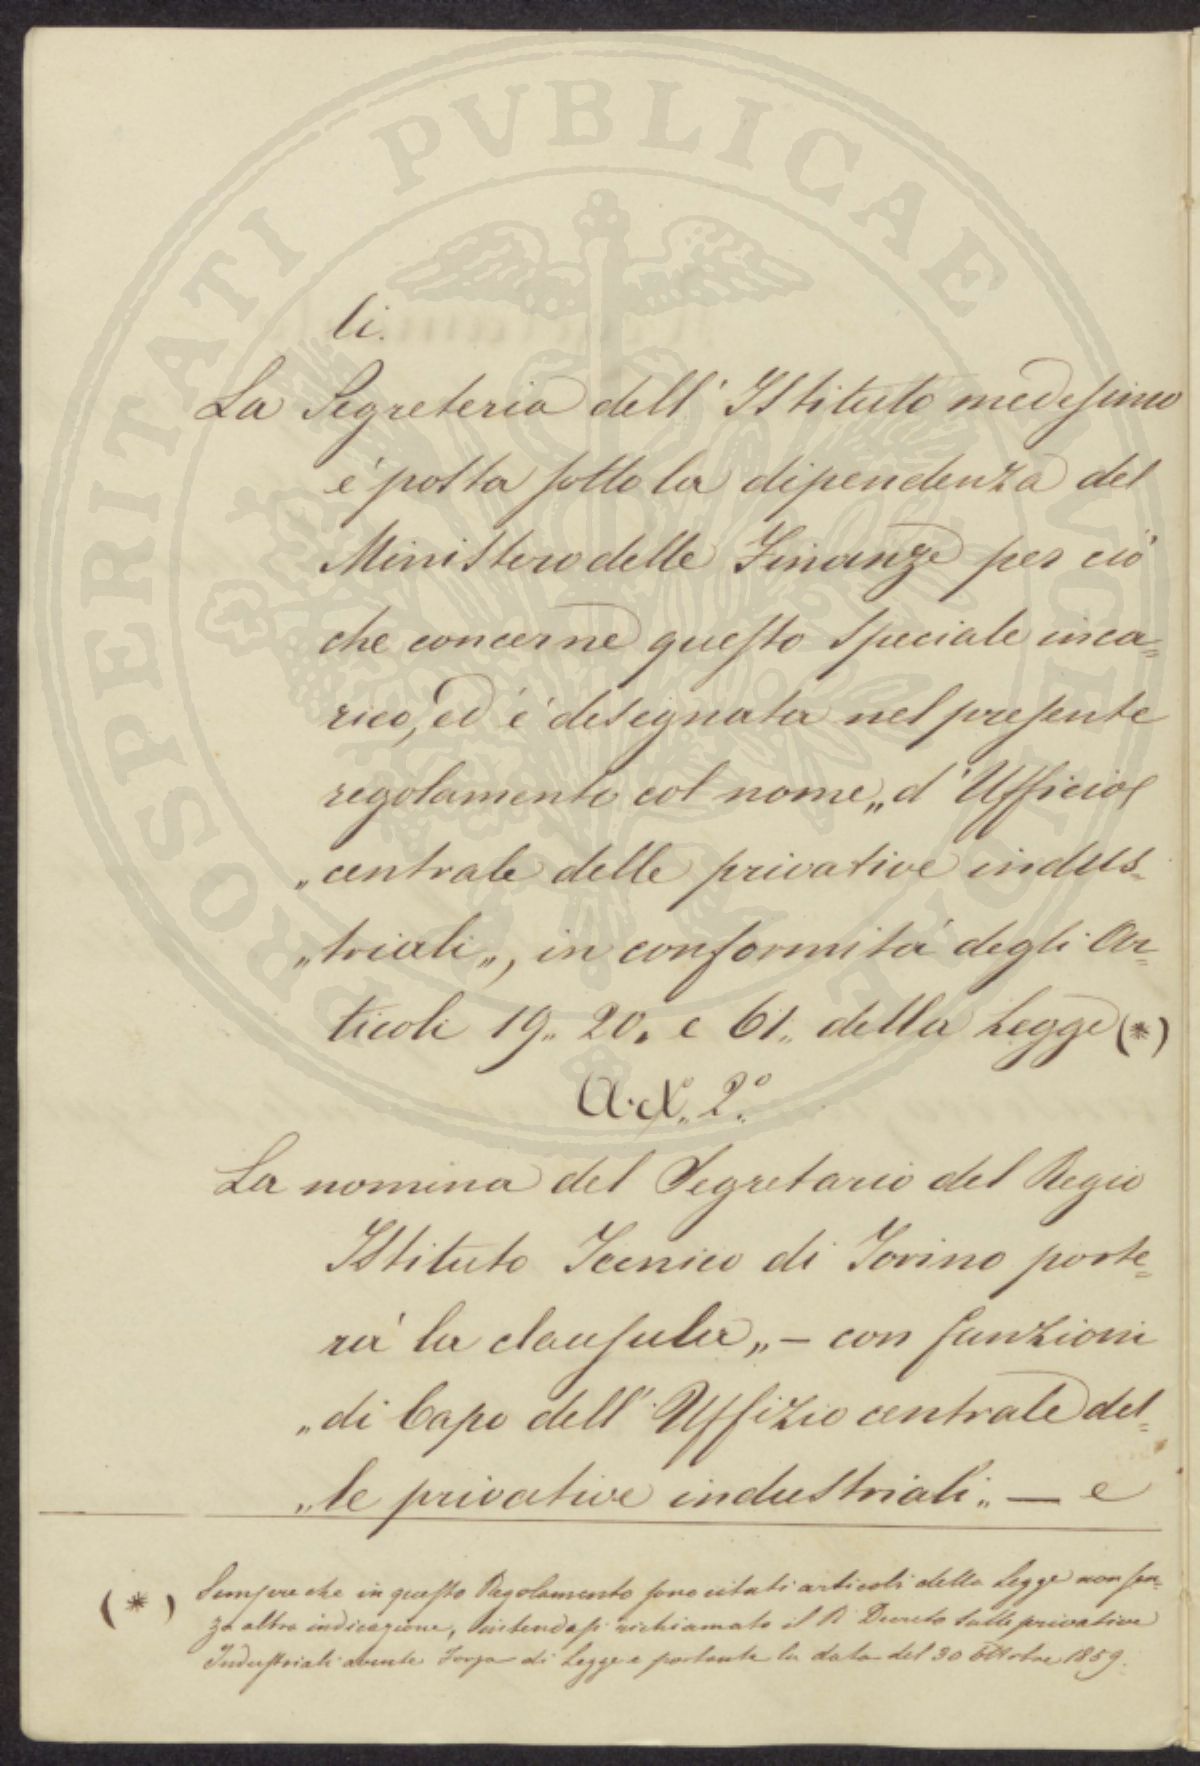 PROSPERITATI PVBLICAE AVGENDAE
li.
La Segreteria dell'Istituto medesimo
è posta sotto la dipendenza del
Ministero delle Finanze per ciò
che concerne questo speciale inca=
rico, ed è designata nel presente
regolamento col nome „d'Ufficio
„centrale delle privative indus=
„triali„, in conformità degli Ar=
ticoli 19„ 20„ e 61„ della Legge (*)
Art. 2°
La nomina del Segretario del Regio
Istituto Tecnico di Torino porte=
rà la clausula„ — con funzioni
„di Capo dell'Uffizio centrale del=
„le privative industriali„ — e
(*) Sempre che in questo Regolamento sono citati articoli della Legge non sen=
za altra indicazione, intendasi richiamato il R. Decreto sulle privative
Industriali avente Forza di Legge e portante la data del 30 Ottobre 1859.